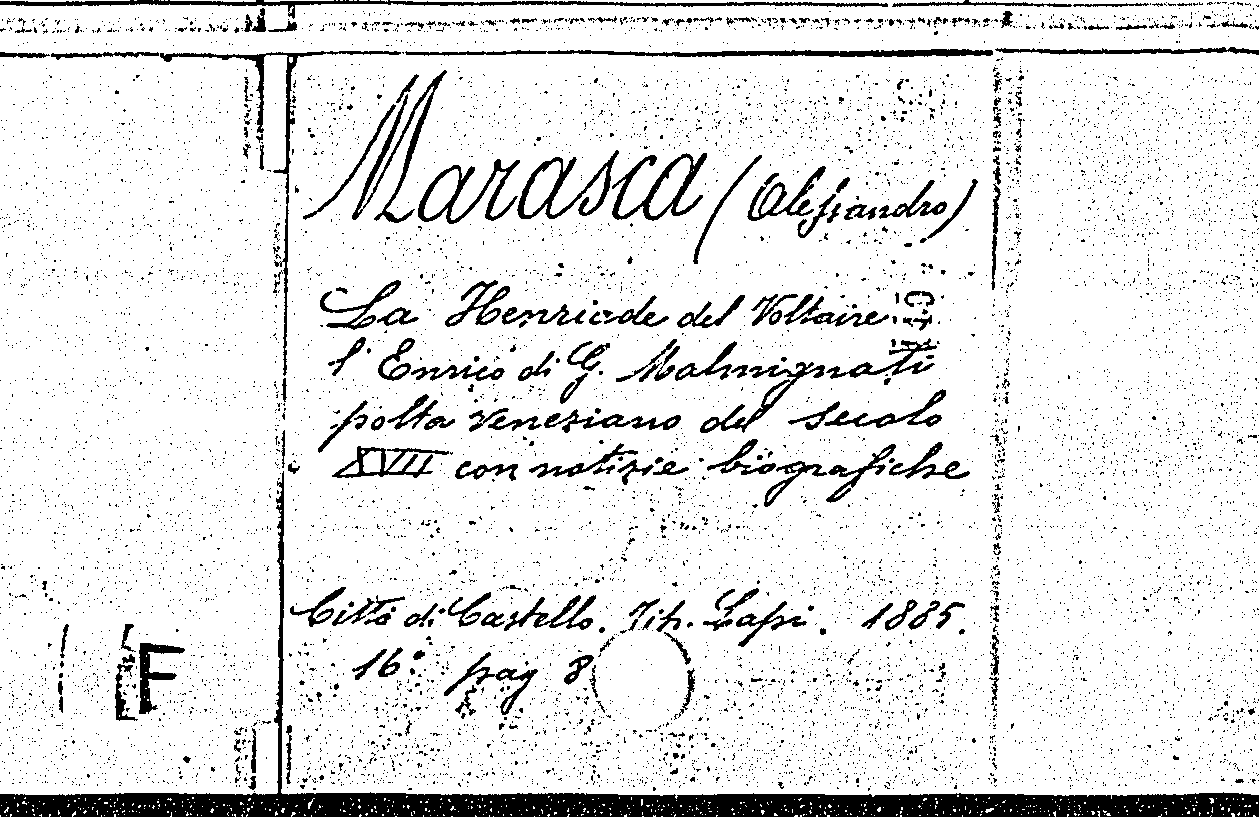 Marasca (Alessandro)
La Henriade del Voltaire
l'Enrico di G. Malmignati
polta veneziano del secolo
XVII con notizie biografiche
Città di Castello. Tip. Lapi. 1885.
16° pag 8
F